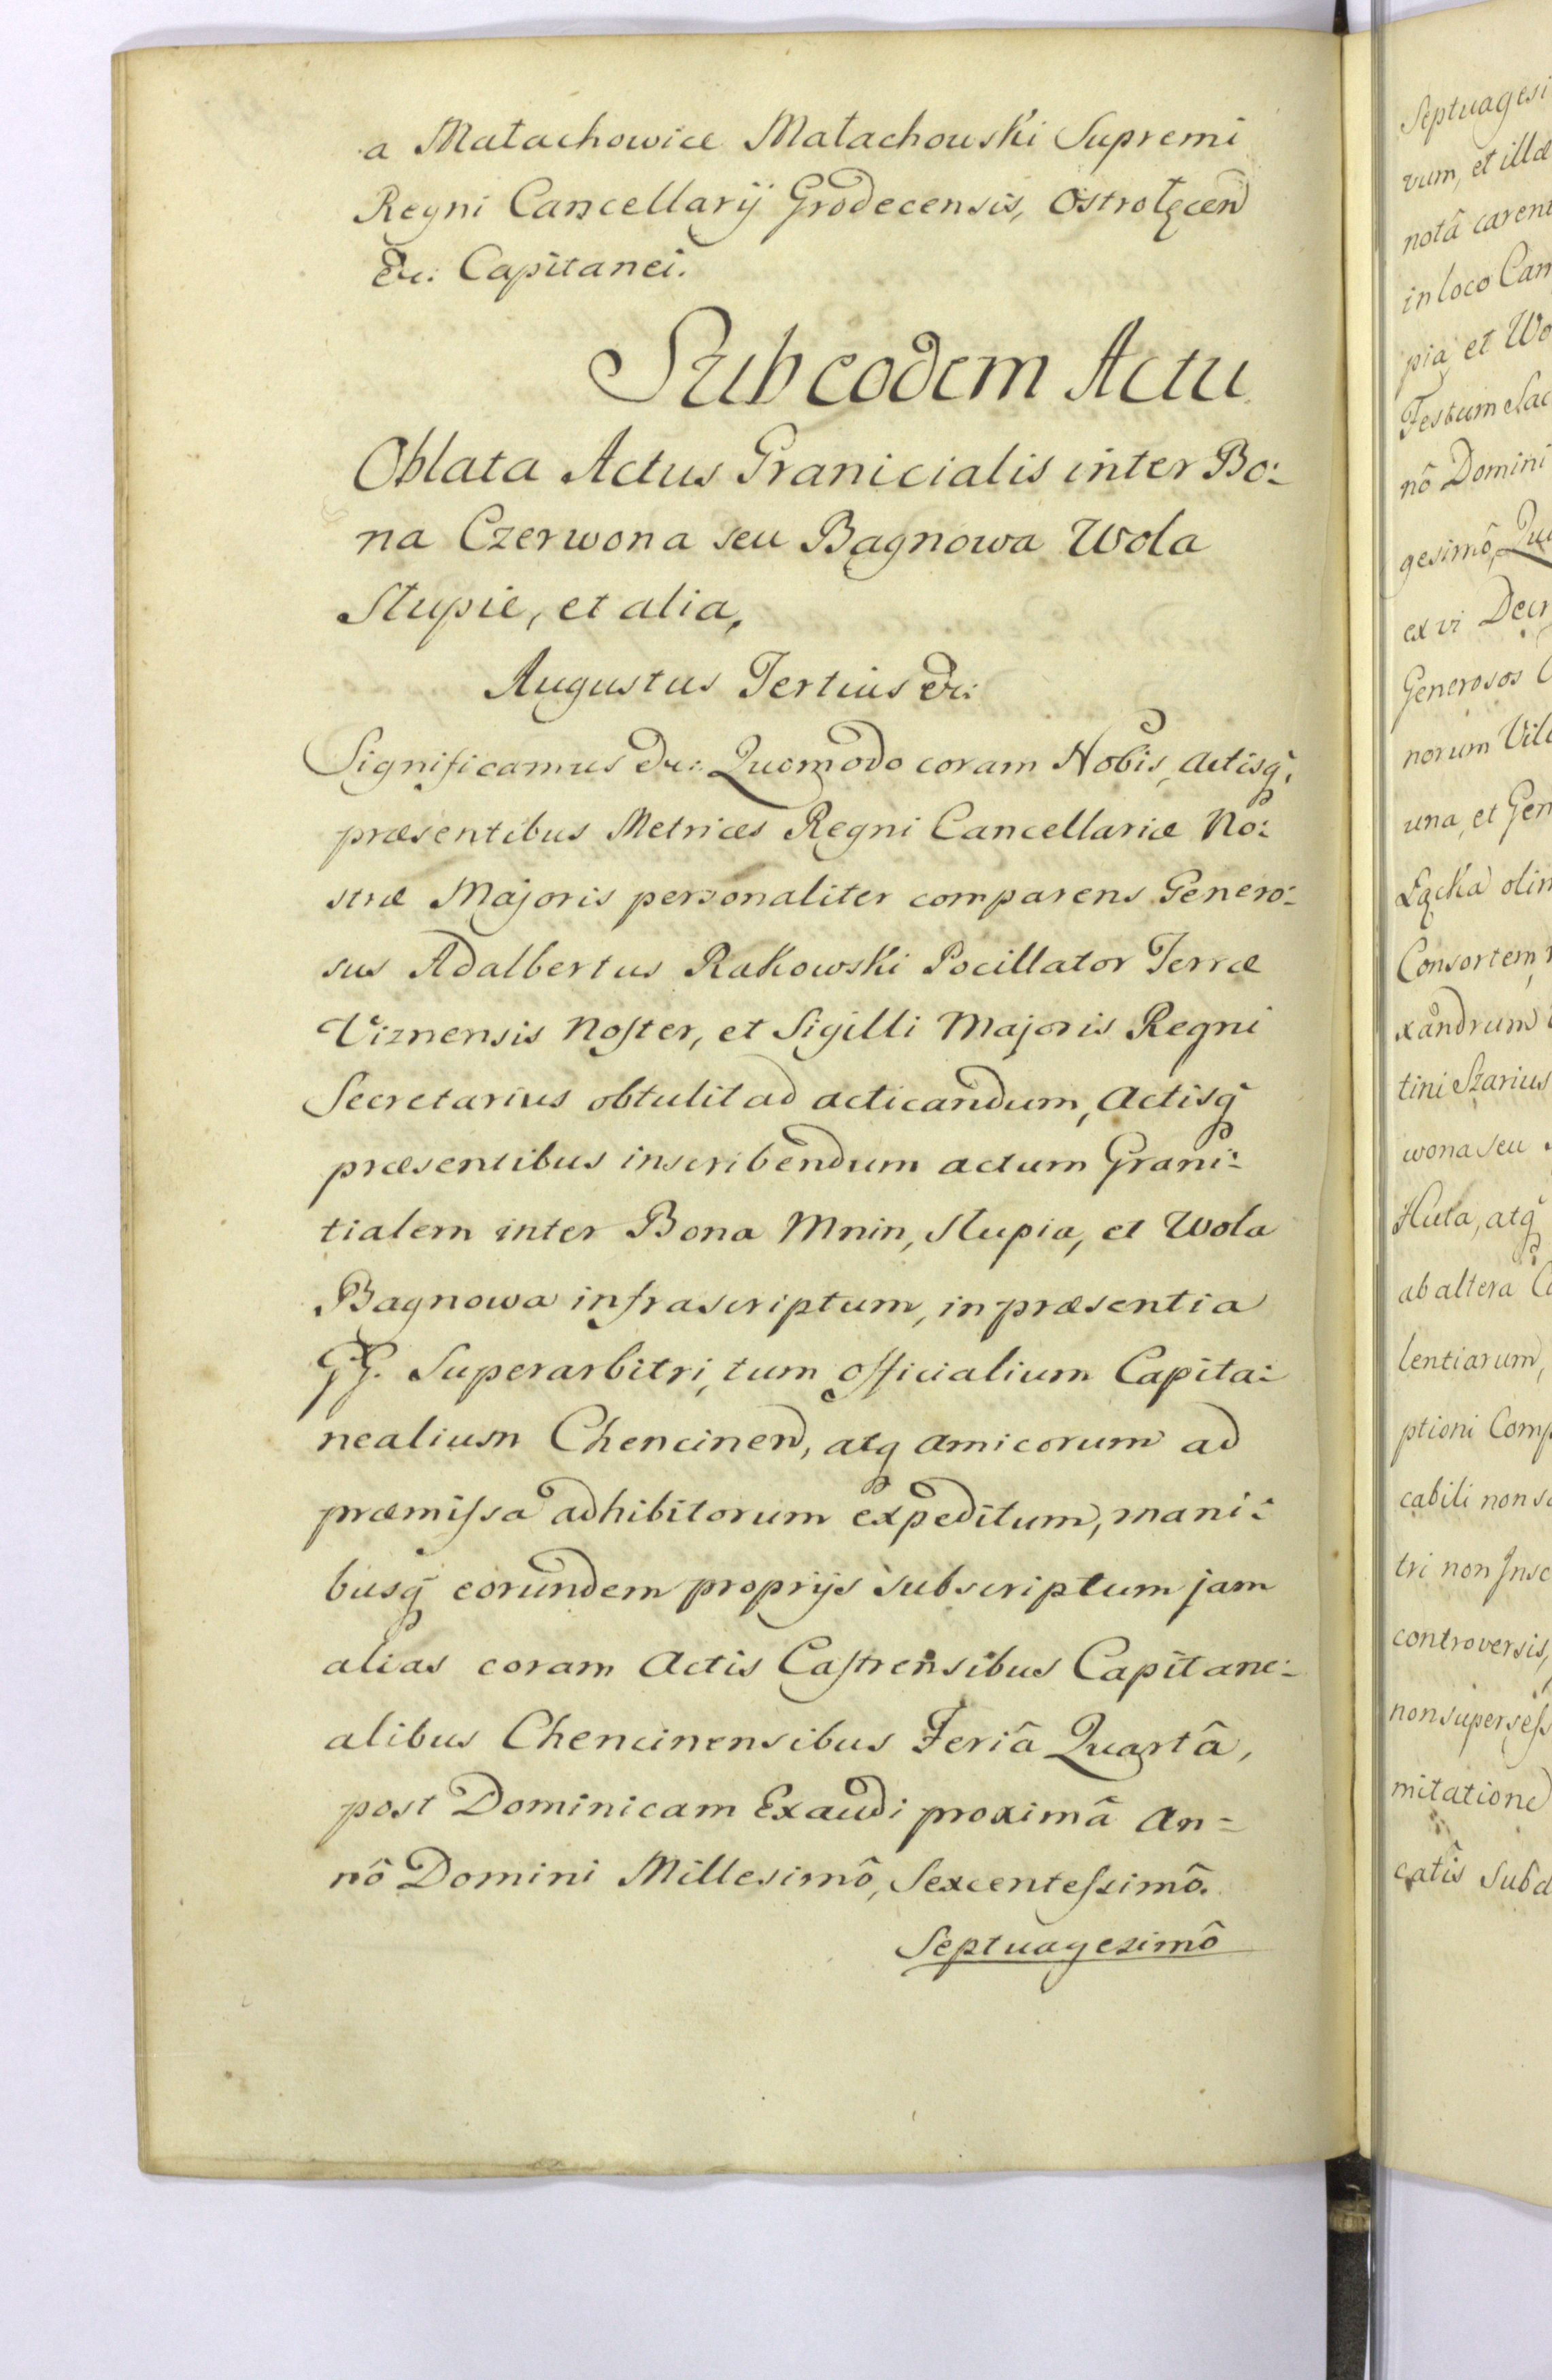 a Małachowice Małachowski Supremi
Regni Cancellarij Grodecensis, Ostrołęcen
&c: Capitanei.
Sub eodem Actu
Oblata Actus Granicialis inter Bo:
na Czerwona seu Bagnowa Wola
Słupie, et alia,
Augustus Tertius &c:
Significamus &c: Quomodo coram Nobis, Actisq́,
præsentibus Metrices Regni Cancellariæ No:
stræ Majoris personaliter comparens Genero:
sus Adalbertus Rakowski Pocillator Terræ
Viznensis Noster, et Sigilli Majoris Regni
Secretarius obtulit ad acticandum, Actisq́
præsentibus inscribendum actum Grani:
tialem inter Bona Mnin, Słupia, et Wola
Bagnowa infrascriptum, in præsentia
GG. Superarbitri, tum officialium Capita:
nealium Chencinen, atq amicorum ad
præmissa adhibitorum expeditum, mani:
busq́ eorundem proprijs subscriptum jam
alias coram Actis Castrensibus Capitane:
alibus Chencinensibus Feriâ Quartâ,
post Dominicam Exaudi proximâ An=
nô Domini Millesimô, Sexcentessimô.
Septuagesimô
Septuagesi
vum, et illæ
notâ carent
in loco Cam
pia et Wo
Festum Sac
nô Domini
gesimô, Qu
ex vi Decr
Generosos
norum Vill
una, et Gen
Łącka olim
Consortem,
xandrum
tini Szarius
wona seu
Huta, atq́
ab altera C
lentiarum,
ptioni Comp
cabili non s
tri non Insc
controversis,
non supersess
mitatione
catis Subd